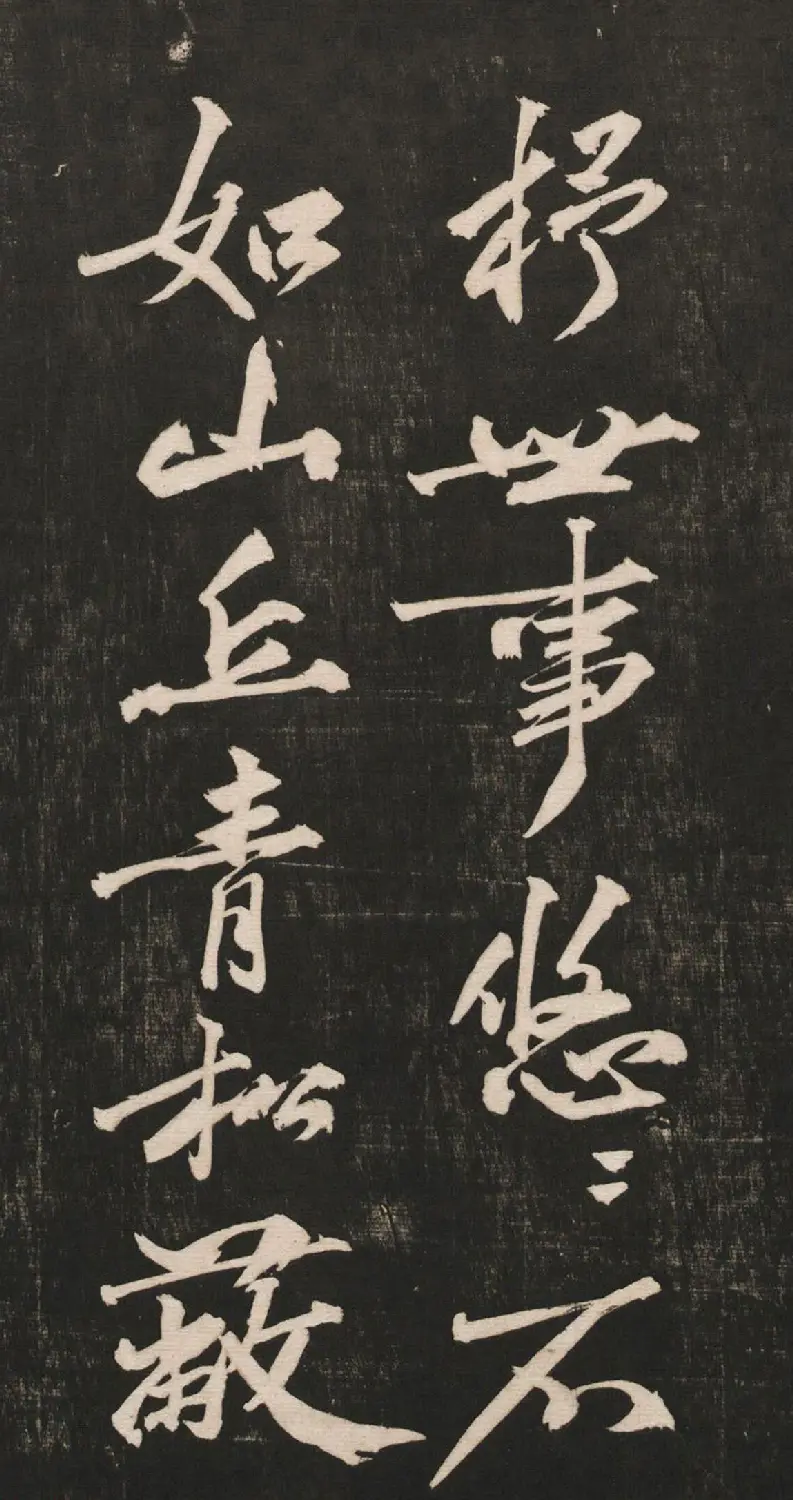 杼世事悠〻不
如山丘青松蔽